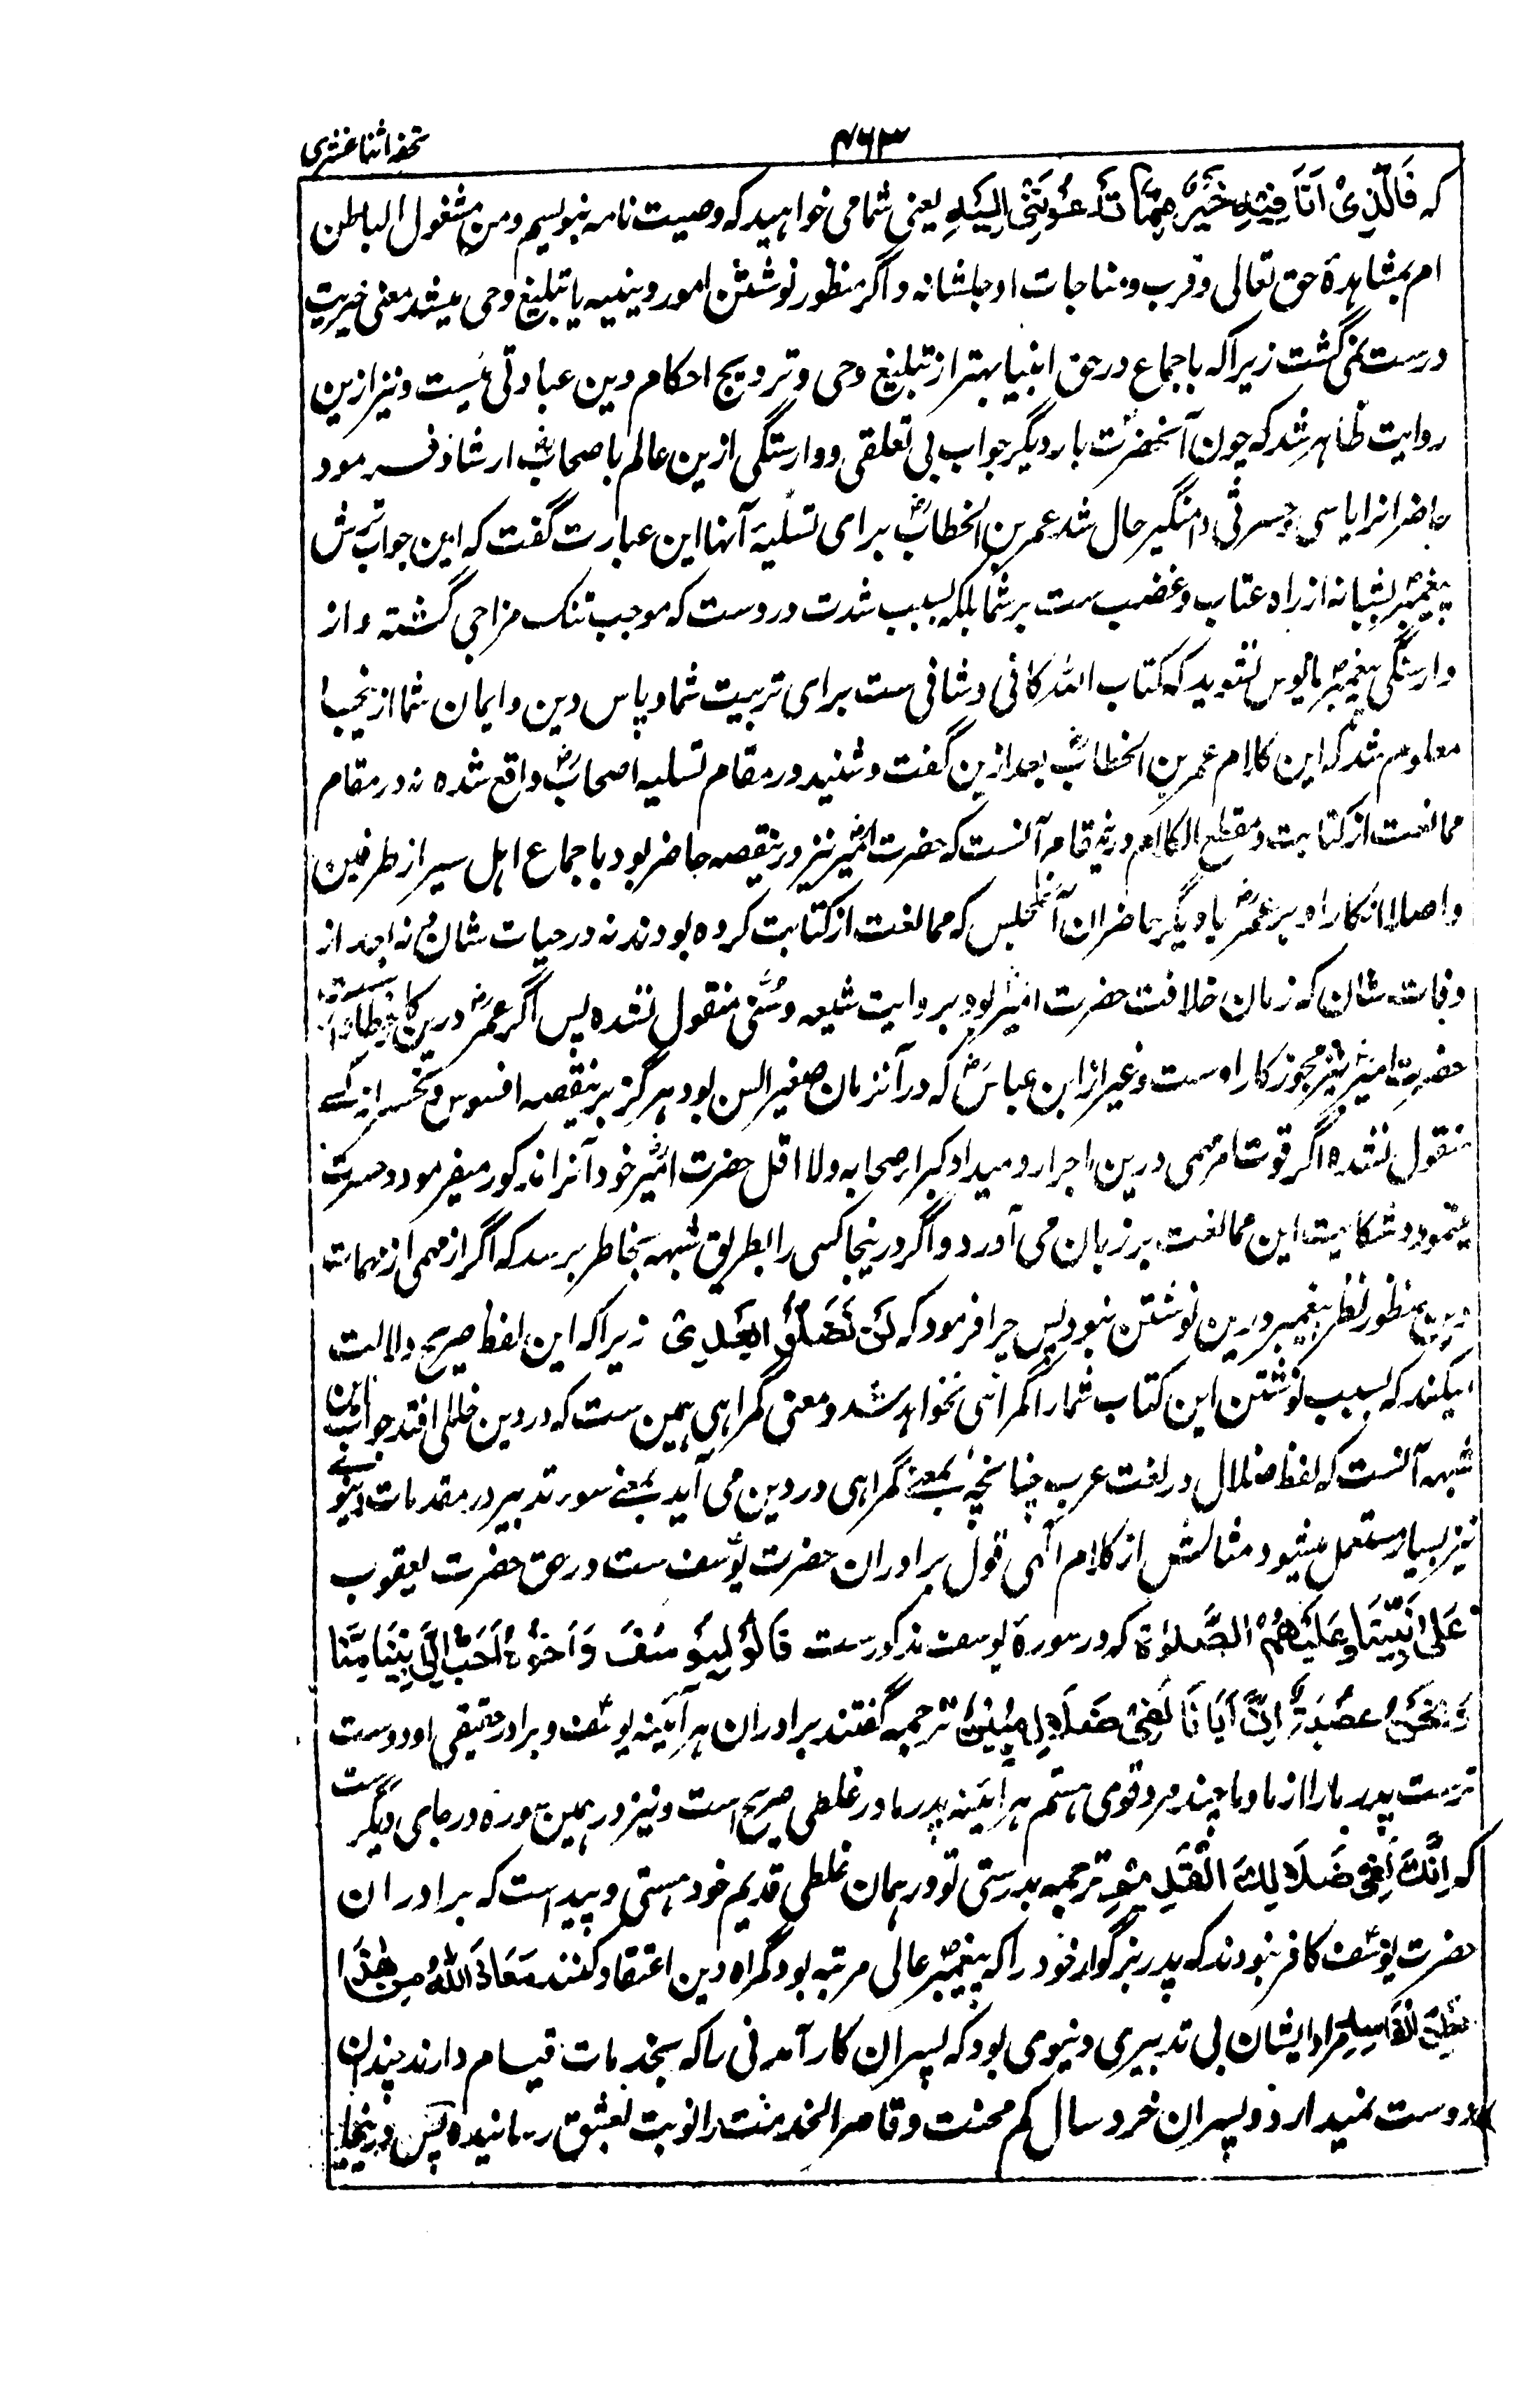 تحفه اثنا عشری
۴۶۳
که فَالَّذِیْ اَنَا فِیْهِ خَیْرٌ مِمَّا تَدْعُوْنَنِیْ اِلَیْهِ یعنی شما می خواهید که وصیت نامه بنویسم و من مشغول الباطن
ام بمشاهدۀ حق تعالی و قرب و مناجات او جلشانه و اگر منظور نوشتن امور دینیه یا تبلیغ وحی میشد معنی خیریت
درست نمی گشت زیرا که باجماع در حق انبیا بهتر از تبلیغ وحی و ترویج احکام دین عبادتی نیست و نیز ازین
روایت ظاهر شد که چون آنحضرت بار دیگر جواب بی تعلقی و وارستگی ازین عالم باصحاب ارشاد فرمود
حاضرانرا یاسی و حسرتی دامنگیر حال شد عمر بن الخطاب برای تسلیۀ آنها این عبارت گفت که این جواب ترش
پیغمبر بشما نه از راه عتاب و غضب ست بر شما بلکه بسبب شدت درد ست که موجب تنک مزاجی گشته و از
وارستگی پیغمبر مایوس نشوید که کتاب الله کافی و شافی ست برای تربیت شما و پاس دین و ایمان شما ازینجا
معلوم شد که این کلام عمر بن الخطاب بعد ازین گفت و شنید در مقام تسلیه اصحاب واقع شده نه در مقام
ممانعت از کتابت و مقطع الکلام درینمقام آنست که حضرت امیر نیز درینقصه حاضر بود باجماع اهل سیر از طرفین
و اصلا انکار او بر عمر یا دیگر حاضران آنمجلس که ممانعت از کتابت کرده بودند نه در حیات شان و نه بعد از
وفات شان که زمان خلافت حضرت امیر بود بروایت شیعه و سنی منقول نشده پس اگر عمر درین کار خطا دار ست
حضرت امیر نیز مجوز کار اوست و غیر از ابن عباس که در آنزمان صغیر السن بود هرگز برینقصه افسوس و تحسر از کسے
منقول نشده اگر فوت امر مهمی درین ماجرا رو میداد کبراء صحابه و لا اقل حضرت امیر خود آنرا مذکور میفرمود و حسرت
مینمود و شکایت این ممانعت بر زبان می آورد و اگر درینجا کسی را بطریق شبهه بخاطر برسد که اگر از مهمی از مهمات
دین منظور نظر پیغمبر درین نوشتن نبود پس چرا فرمود که لَنْ تَضِلُّوْا بَعْدِیْ زیرا که این لفظ صریح دلالت
میکند که بسبب نوشتن این کتاب شما را گمراهی نخواهد شد و معنی گمراهی همین ست که در دین خللی افتد جواب این
شبهه آنست که لفظ ضلال در لغت عرب چنانچه بمعنے گمراهی در دین می آید بمعنے سوء تدبیر در مقدمات دنیوے
نیز بسیار مستعمل میشود مثالش از کلام الهی قول برادران حضرت یوسف ست در حق حضرت یعقوب
عَلٰی نَبِیِّنَا وَعَلَیْهِمُ الصَّلٰوةُ که در سورۀ یوسف مذکور ست قَالُوْا لَیُوْسُفُ وَاَخُوْهُ اَحَبُّ اِلٰی اَبِیْنَا مِنَّا
وَنَحْنُ عُصْبَةٌ اِنَّ اَبَانَا لَفِیْ ضَلَالٍ مُبِیْنٍ ترجمه گفتند برادران هر آئینه یوسف و برادر حقیقی او دوست
ترست پدر ما را از ما و ما چند مرد قوی هستیم هر آئینه پدر ما در غلطی صریح است و نیز در همین سوره در جای دیگر ست
که اِنَّكَ لَفِیْ ضَلَالِكَ الْقَدِیْمِ ترجمه بدرستی تو در همان غلطی قدیم خود هستی و پیداست که برادران
حضرت یوسف کافر نبودند که پدر بزرگوار خود را که پیغمبر عالی مرتبه بود گمراه دین اعتقاد کنند مَعَاذَ اللّٰهِ مِنْ هٰذَا
الظَّنِّ الْفَاسِدِ مراد ایشان بی تدبیری دنیوی بود که پسران کار آمدنی را که بخدمات قیام دارند چندان
دوست نمیدارد و پسران خرد سال کم محنت و قاصر الخدمت را نوبت بعشق رسانیده پس درینجا